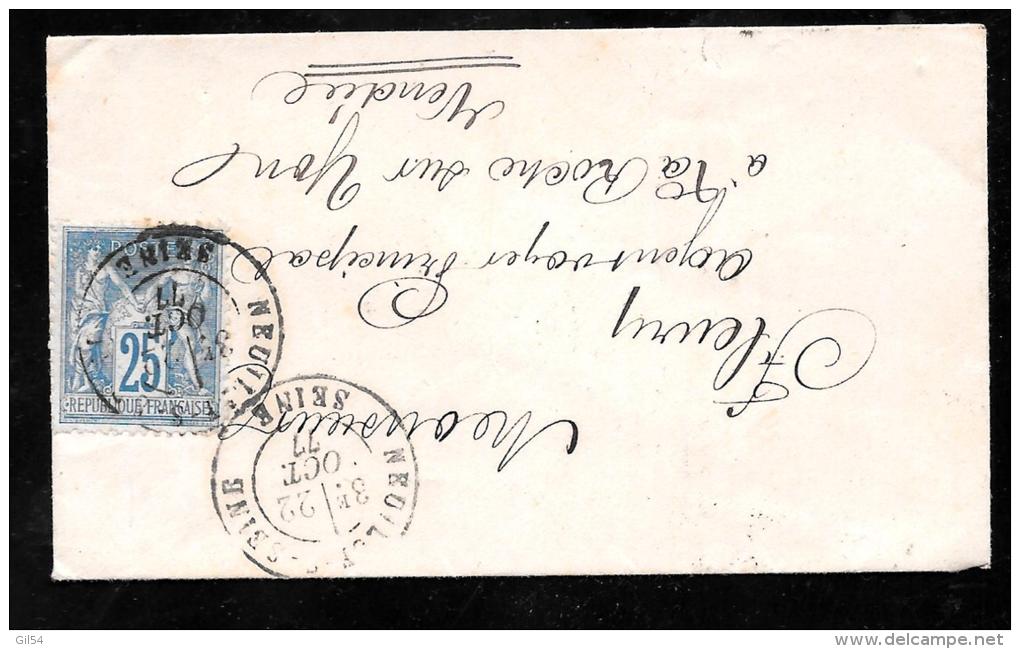 Monsieur
Fleury
Agent voyer Principal
à la Roche sur Yon
Vendée
POSTES
25
REPUBLIQUE FRANÇAISE
SEINE
OCT.
77
3E
22
3E
OCT.
77
SEINE
Gil54
www.delcampe.net